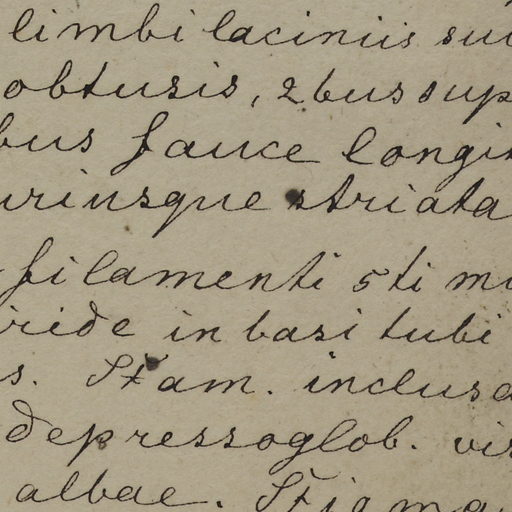 limbi laciniis su
obtusis, 2bus sup
bus fauce longi
urinsque striata
filamenti 5ti m
ride in basi tubi
s. Stam. inclusa
depressoglob. vi
albae. Stigma